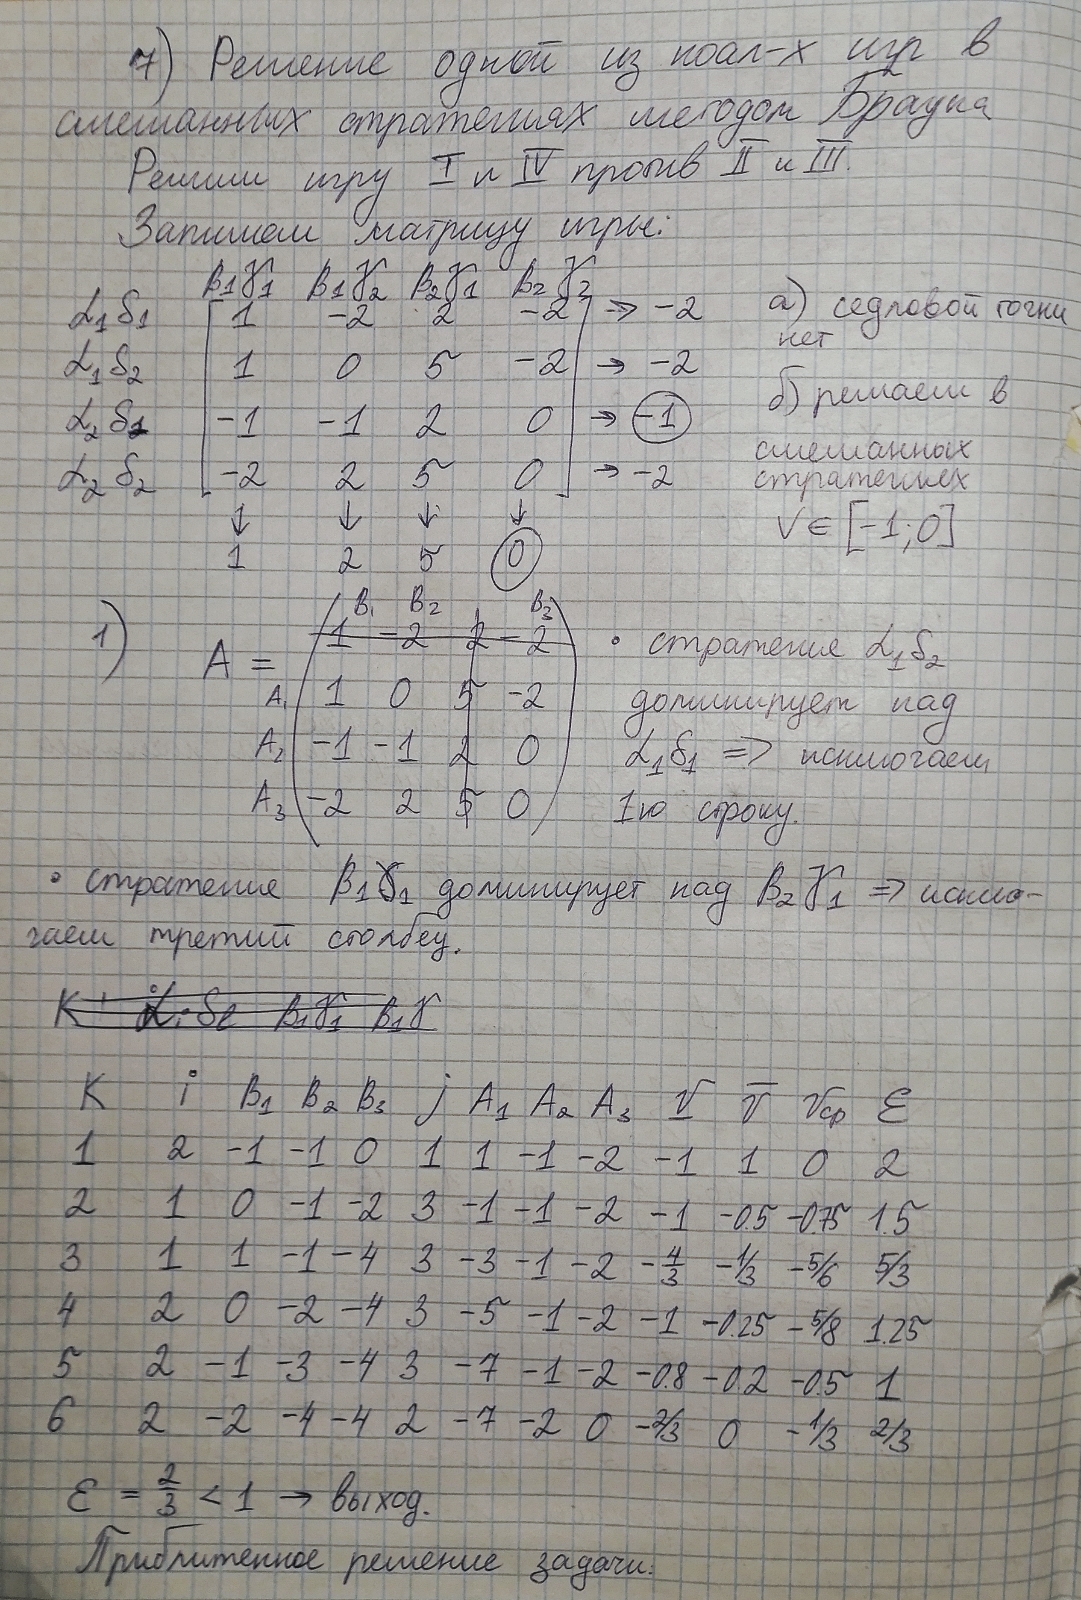 7) Решение одной из коал-х игр в
смешанных стратегиях методом Брауна
Решим игру I и IV против II и III.
Запишем матрицу игры:
β1γ1 β1γ2 β2γ1 β2γ2
α1δ1 1 -2 2 -2 → -2
α1δ2 1 0 5 -2 → -2
α2δ1 -1 -1 2 0 → -1
α2δ2 -2 2 5 0 → -2
↓ ↓ ↓ ↓
1 2 5 0
а) седловой точки
нет
б) решаем в
смешанных
стратегиях
V ∈ [-1; 0]
1)
B1 B2 B3
A =
1 -2 2 -2
A1 1 0 5 -2
A2 -1 -1 2 0
A3 -2 2 5 0
• стратегия α1δ2
доминирует над
α1δ1 => исключаем
1ю строку.
• стратегия β1γ1 доминирует над β2γ1 => исклю-
чаем третий столбец.
K i B1 B2 B3 j A1 A2 A3 V V̅ Vср ε
1 2 -1 -1 0 1 1 -1 -2 -1 1 0 2
2 1 0 -1 -2 3 -1 -1 -2 -1 -0.5 -0.75 1.5
3 1 1 -1 -4 3 -3 -1 -2 -4/3 -1/3 -5/6 5/3
4 2 0 -2 -4 3 -5 -1 -2 -1 -0.25 -5/8 1.25
5 2 -1 -3 -4 3 -7 -1 -2 -0.8 -0.2 -0.5 1
6 2 -2 -4 -4 2 -7 -2 0 -2/3 0 -1/3 2/3
ε = 2/3 < 1 → выход.
Приближенное решение задачи: